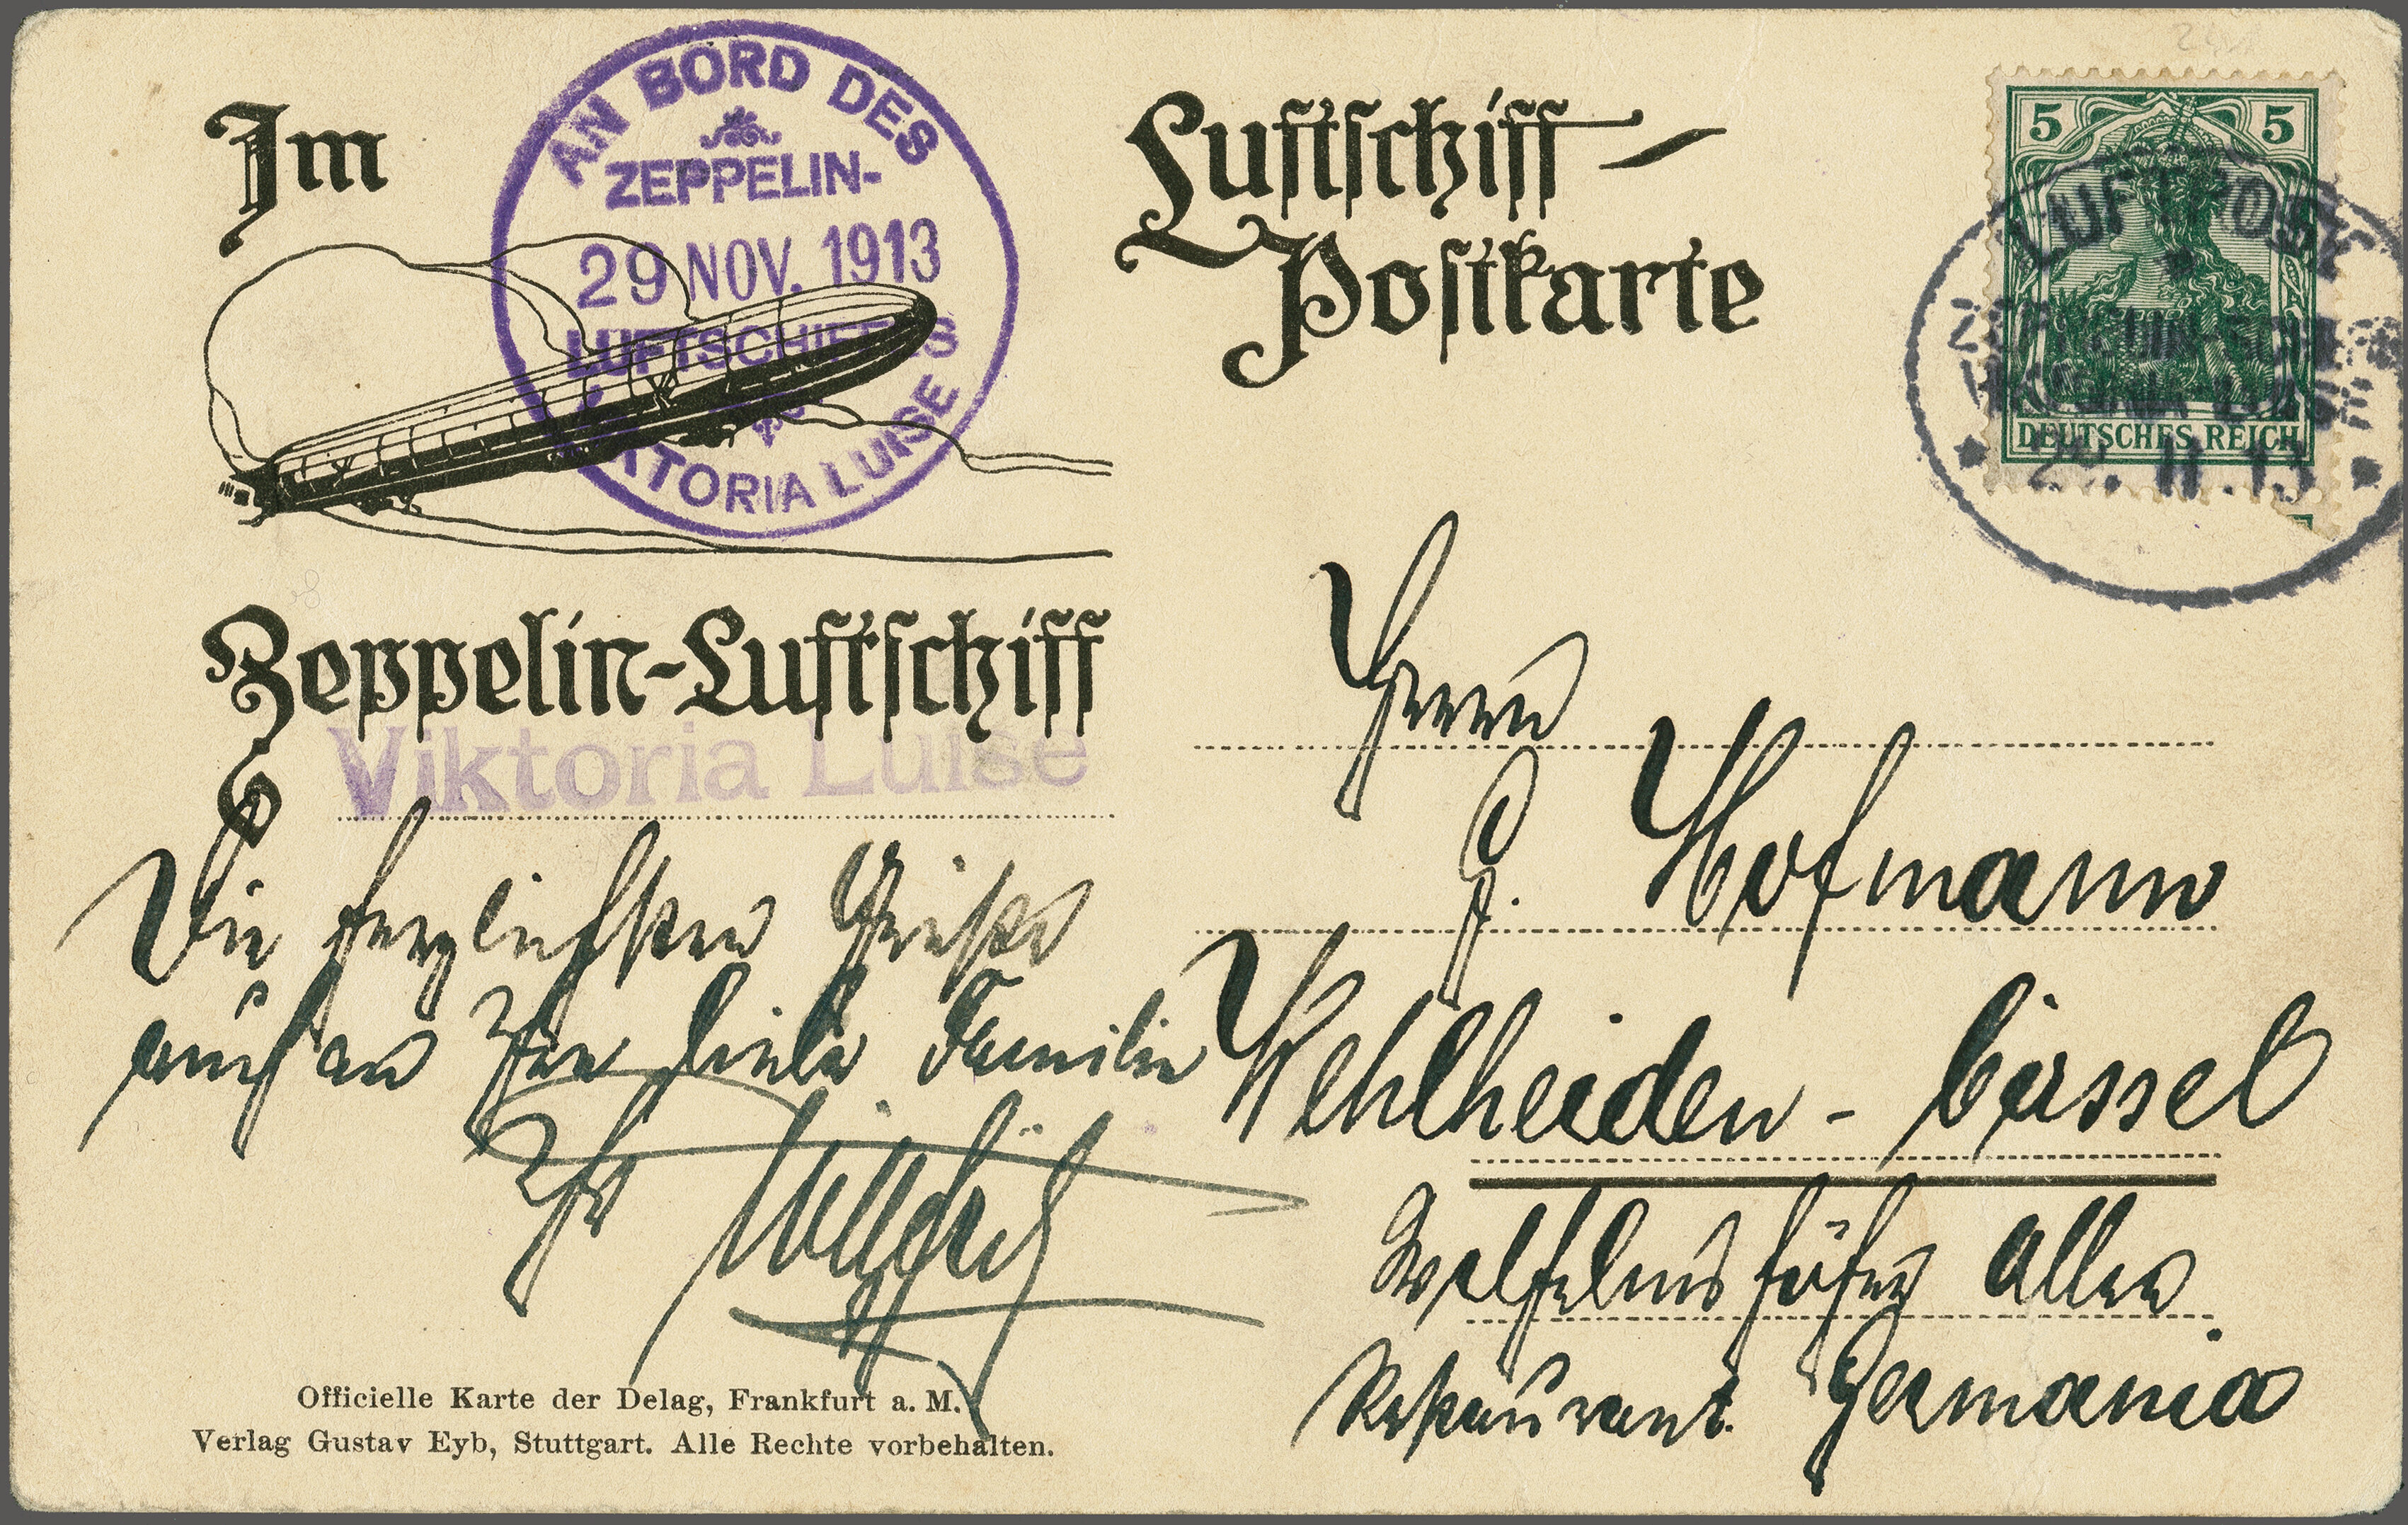 Im
AN BORD DES
ZEPPELIN-
29 NOV. 1913
LUFTSCHIFFES
VIKTORIA LUISE
Zeppelin-Luftschiff
Viktoria Luise
Die herzlichsten Grüße
auch an Ihre liebe Familie
Ihr
Officielle Karte der Delag, Frankfurt a. M.
Verlag Gustav Eyb, Stuttgart. Alle Rechte vorbehalten.
Luftschiff-
Postkarte
5 5
DEUTSCHES REICH
LUFTPOST
ZEPPELIN-SCHIFF
VIKTORIA-LUISE
29.11.13
Herrn
J. Hofmann
Wehlheiden - Cassel
Wilhelmshöher Allee
Restaurant Germania